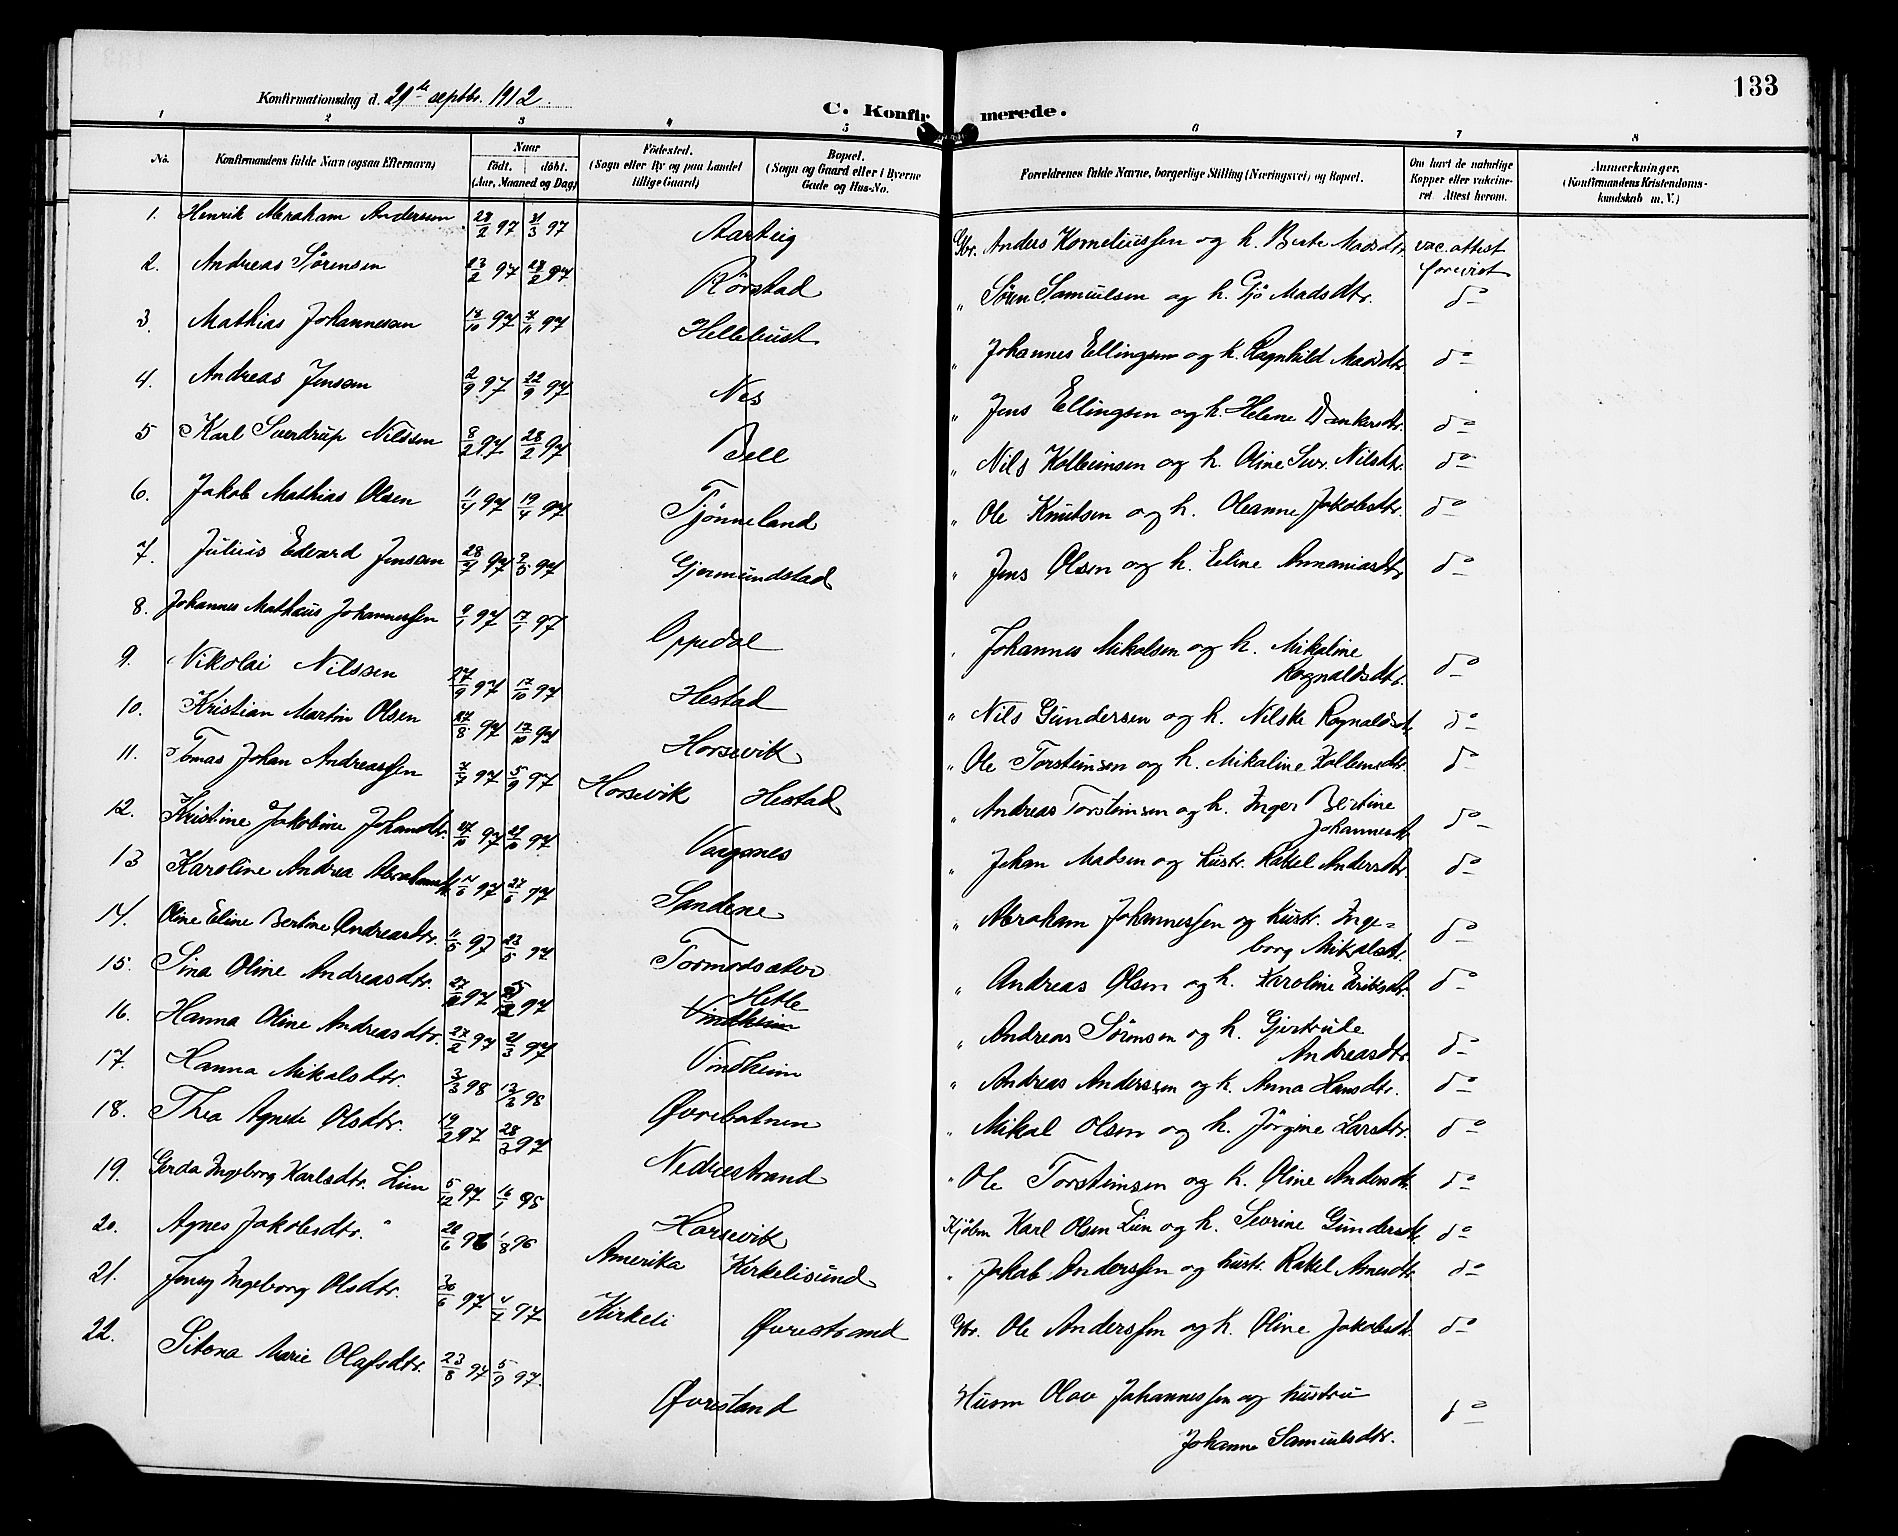 133
Konfirmationsdag d. 29de septbr. 1912.
C. Konfirmerede.
1 2 3 4 5 6 7 8
No. Konfirmandens fulde Navn (ogsaa Efternavn) Naar födt. döbt. (Aar, Maaned og Dag) Födested. (Sogn eller By og paa Landet tillige Gaard) Bopæl. (Sogn og Gaard eller i Byerne Gade og Hus-No.) Forældrenes fulde Navne, borgerlige Stilling (Næringsvei) og Bopæl. Om havt de naturlige Kopper eller vaccineret. Attest herom. Anmerkninger. (Konfirmandens Kristendomskundskab m. V.)
1. Henrik Abraham Andersen 28/2 97 21/3 97 Aartvig Gbr. Anders Korneliussen og h. Berte Madsdtr. vac. attest forevist
2. Andreas Sørensen 23/2 97 28/2 97 Rørstad " Søren Samuelsen og h. Gjø Madsdtr. do
3. Mathias Johannesen 17/10 97 7/11 97 Hellebust " Johannes Ellingsen og h. Ragnhild Madsdtr. do
4. Andreas Jensen 2/9 97 22/9 97 Nes " Jens Ellingsen og h. Helene Dankersdtr. do
5 Karl Sverdrup Nilssen 8/2 97 28/2 97 Bell " Nils Kolbeinsen og h. Oline Sur. Nilsdtr. do
6. Jakob Mathias Olsen 11/4 97 19/4 97 Tjønneland " Ole Knutsen og h. Oleanne Jakobsdtr. do
7. Julius Edvard Jensen 28/7 97 97 Gjermundstad " Jens Olsen og h. Eline Annaniasdtr do
8. Johannes Matheus Johannessen 9/1 97 17/1 97 Oppedal " Johannes Mikalsen og h. Mikaline Ragnaldsdtr. do
9. Nikolai Nilssen 27/9 97 17/10 97 Hestad " Nils Gundersen og h. Nilske Ragnaldsdt. do
10. Kristian Martin Olsen 27/8 97 17/10 97 Horsevik " Ole Torsteinsen og h. Mikaline Kolbensdtr. do
11. Tomas Johan Andreassen 7/7 97 5/9 97 Horsevik Hestad " Andreas Torsteinsen og h. Inger Bertine Johannesdt. do
12. Kristine Jakobine Johansdtr. 10 97 10 97 Vaagsnes " Johan Madsen og hustr. Rakel Andersdtr. do
13 Karoline Andrea Abrahamsdt. 6 97 27/6 97 Sandene " Abraham Johannessen og hustr. Ingeborg Mikalsdt. do
14. Oline Eline Bertine Andreasdtr. 11/5 97 23/5 97 Tormodsaker " Andreas Olsen og h. Karoline Eriksdt. do
15. Sina Oline Andreasdtr. 27 97 97 Hetle Vindheim " Andreas Sørensen og h. Gjertrude Andreasdtr do
16. Hanna Oline Andreasdtr. 27/2 97 21/3 97 Vindheim " Andreas Anderssen og h. Anna Hansdtr. do
17. Hanna Mikalsdtr. 3/3 98 13/3 98 Øvrebotnen " Mikal Olsen og h. Jørgine Larsdtr. do
18. Thea Agnete Olsdtr. 19/2 97 28/3 97 Nedrestrand " Ole Torsteinsen og h. Oline Andersdt. do
19. Gerda Ingeborg Karlsdtr. Lien 5/12 97 16/1 98 Horsevik Kjøbm Karl Olsen Lien og h. Severine Gundersdt. do
20. Agnes Jakobsdtr. " 20/6 96 /8 96 Amerika Kirkeligsund " Jakob Anderssen og hustr. Rakel Arnesdtr. do
21. Jenny Ingeborg Olsdtr. 30/6 97 4/7 97 Kirkeli Øvrestrand Gbr. Ole Anderssen og h. Oline Jakobsdt. do
22. Sitona Marie Olafsdtr. 23/8 97 5/9 97. Øvrestand Husm Olav Johannessen og hustru Johanne Samuelsdtr. do